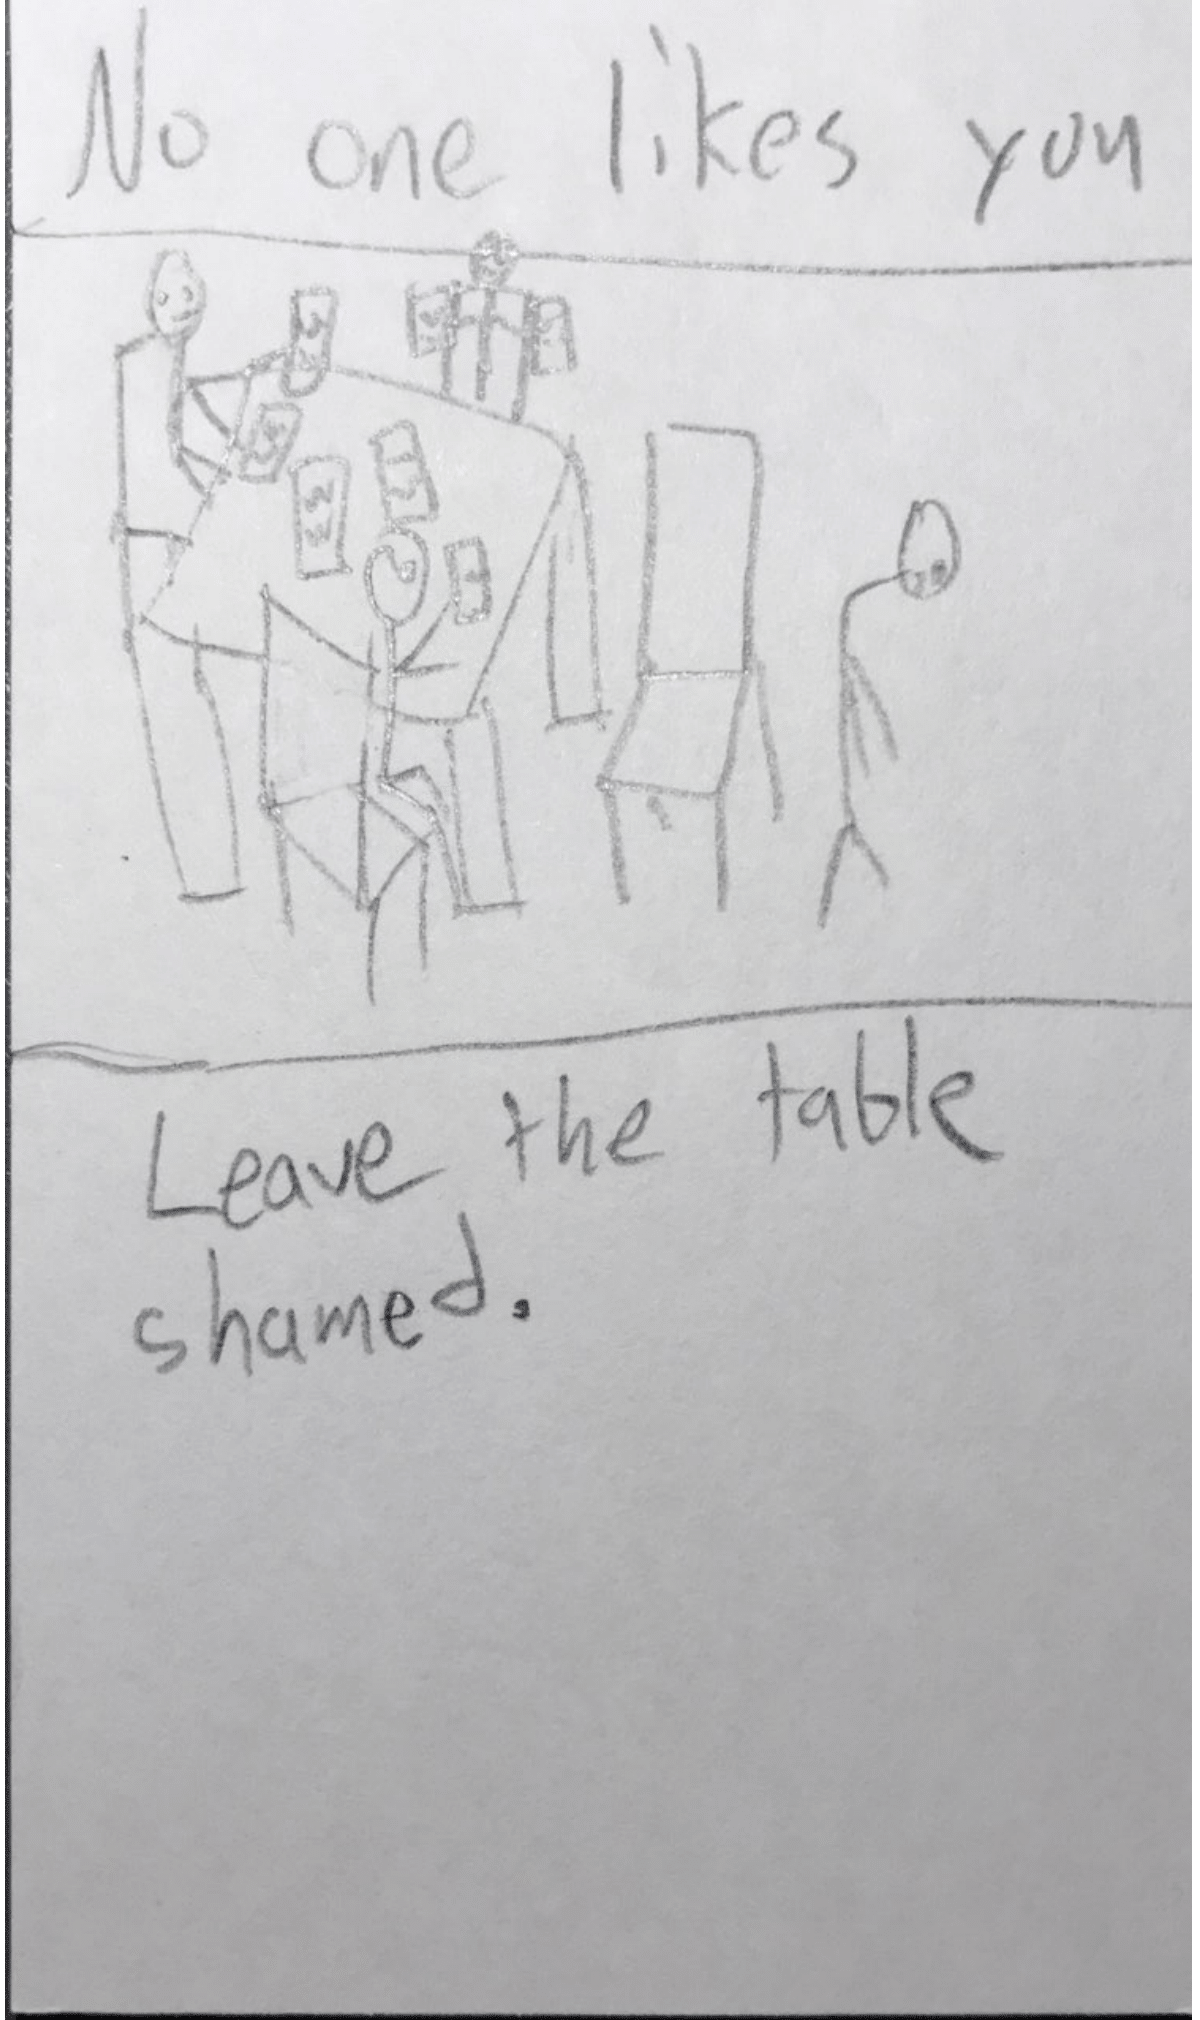 No one likes you
Leave the table
shamed.